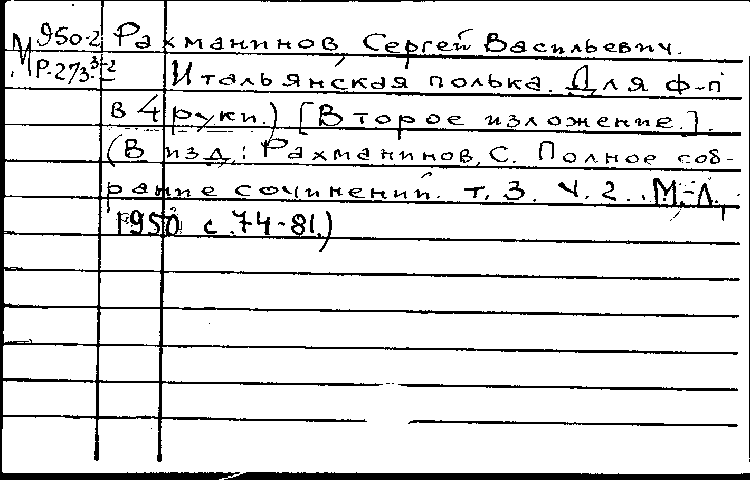 М 950-2 Рахманинов, Сергей Васильевич.
Р-273 3-2 Итальянская полька. Для ф-п
в 4 руки.) [Второе изложение.].
(В изд.: Рахманинов, С. Полное соб-
рание сочинений. т. 3. ч. 2. М.-Л.,
1950 с. 74-81.)